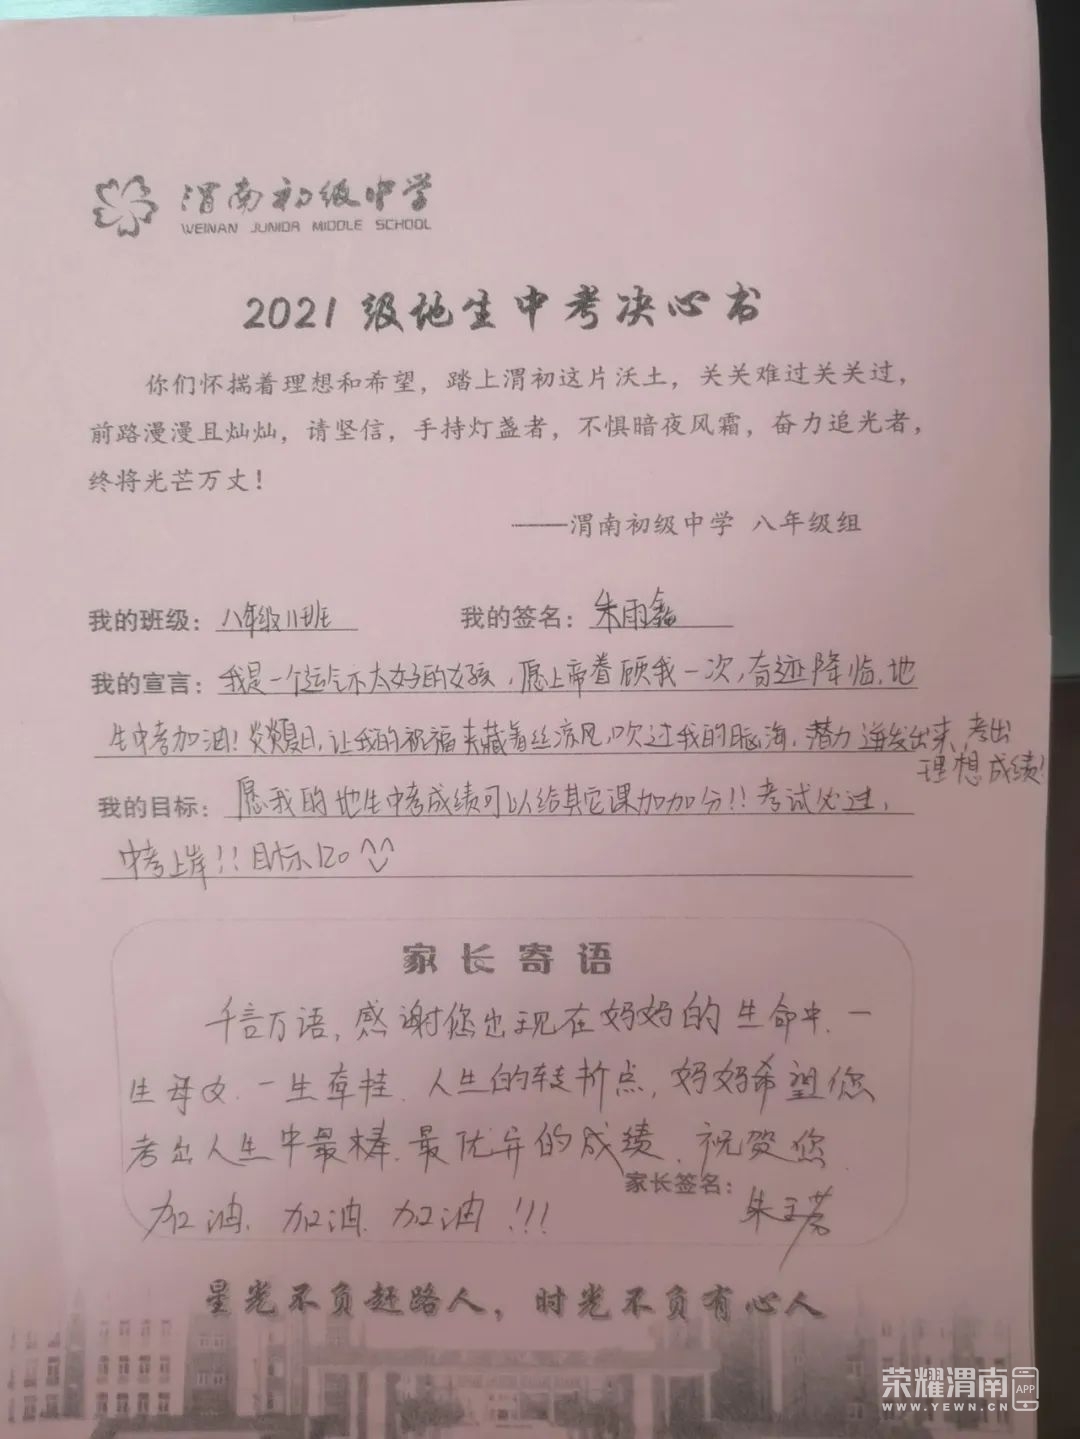 渭南初级中学
WEINAN JUNIOR MIDDLE SCHOOL
2021级地生中考决心书
你们怀揣着理想和希望，踏上渭初这片沃土，关关难过关关过，
前路漫漫且灿灿，请坚信，手持灯盏者，不惧暗夜风霜，奋力追光者，
终将光芒万丈！
——渭南初级中学 八年级组
我的班级：八年级11班 我的签名：朱雨
我的宣言：我是一个运气不太好的女孩，愿上帝眷顾我一次，奇迹降临，地
生中考加油！炎炎夏日，让我的祝福夹藏着丝凉风，吹过我的脑海，潜力迸发出来，考出
理想成绩！
我的目标：愿我的地生中考成绩可以给其它课加加分!!考试必过，
中考上岸!!目标120^^
家长寄语
千言万语，感谢您出现在妈妈的生命中，一
生母女，一生牵挂，人生的转折点，妈妈希望您
考出人生中最棒、最优异的成绩，祝贺您
加油、加油、加油!!!
家长签名：朱芳
星光不负赶路人，时光不负有心人
荣耀渭南APP
WWW.YEWN.CN